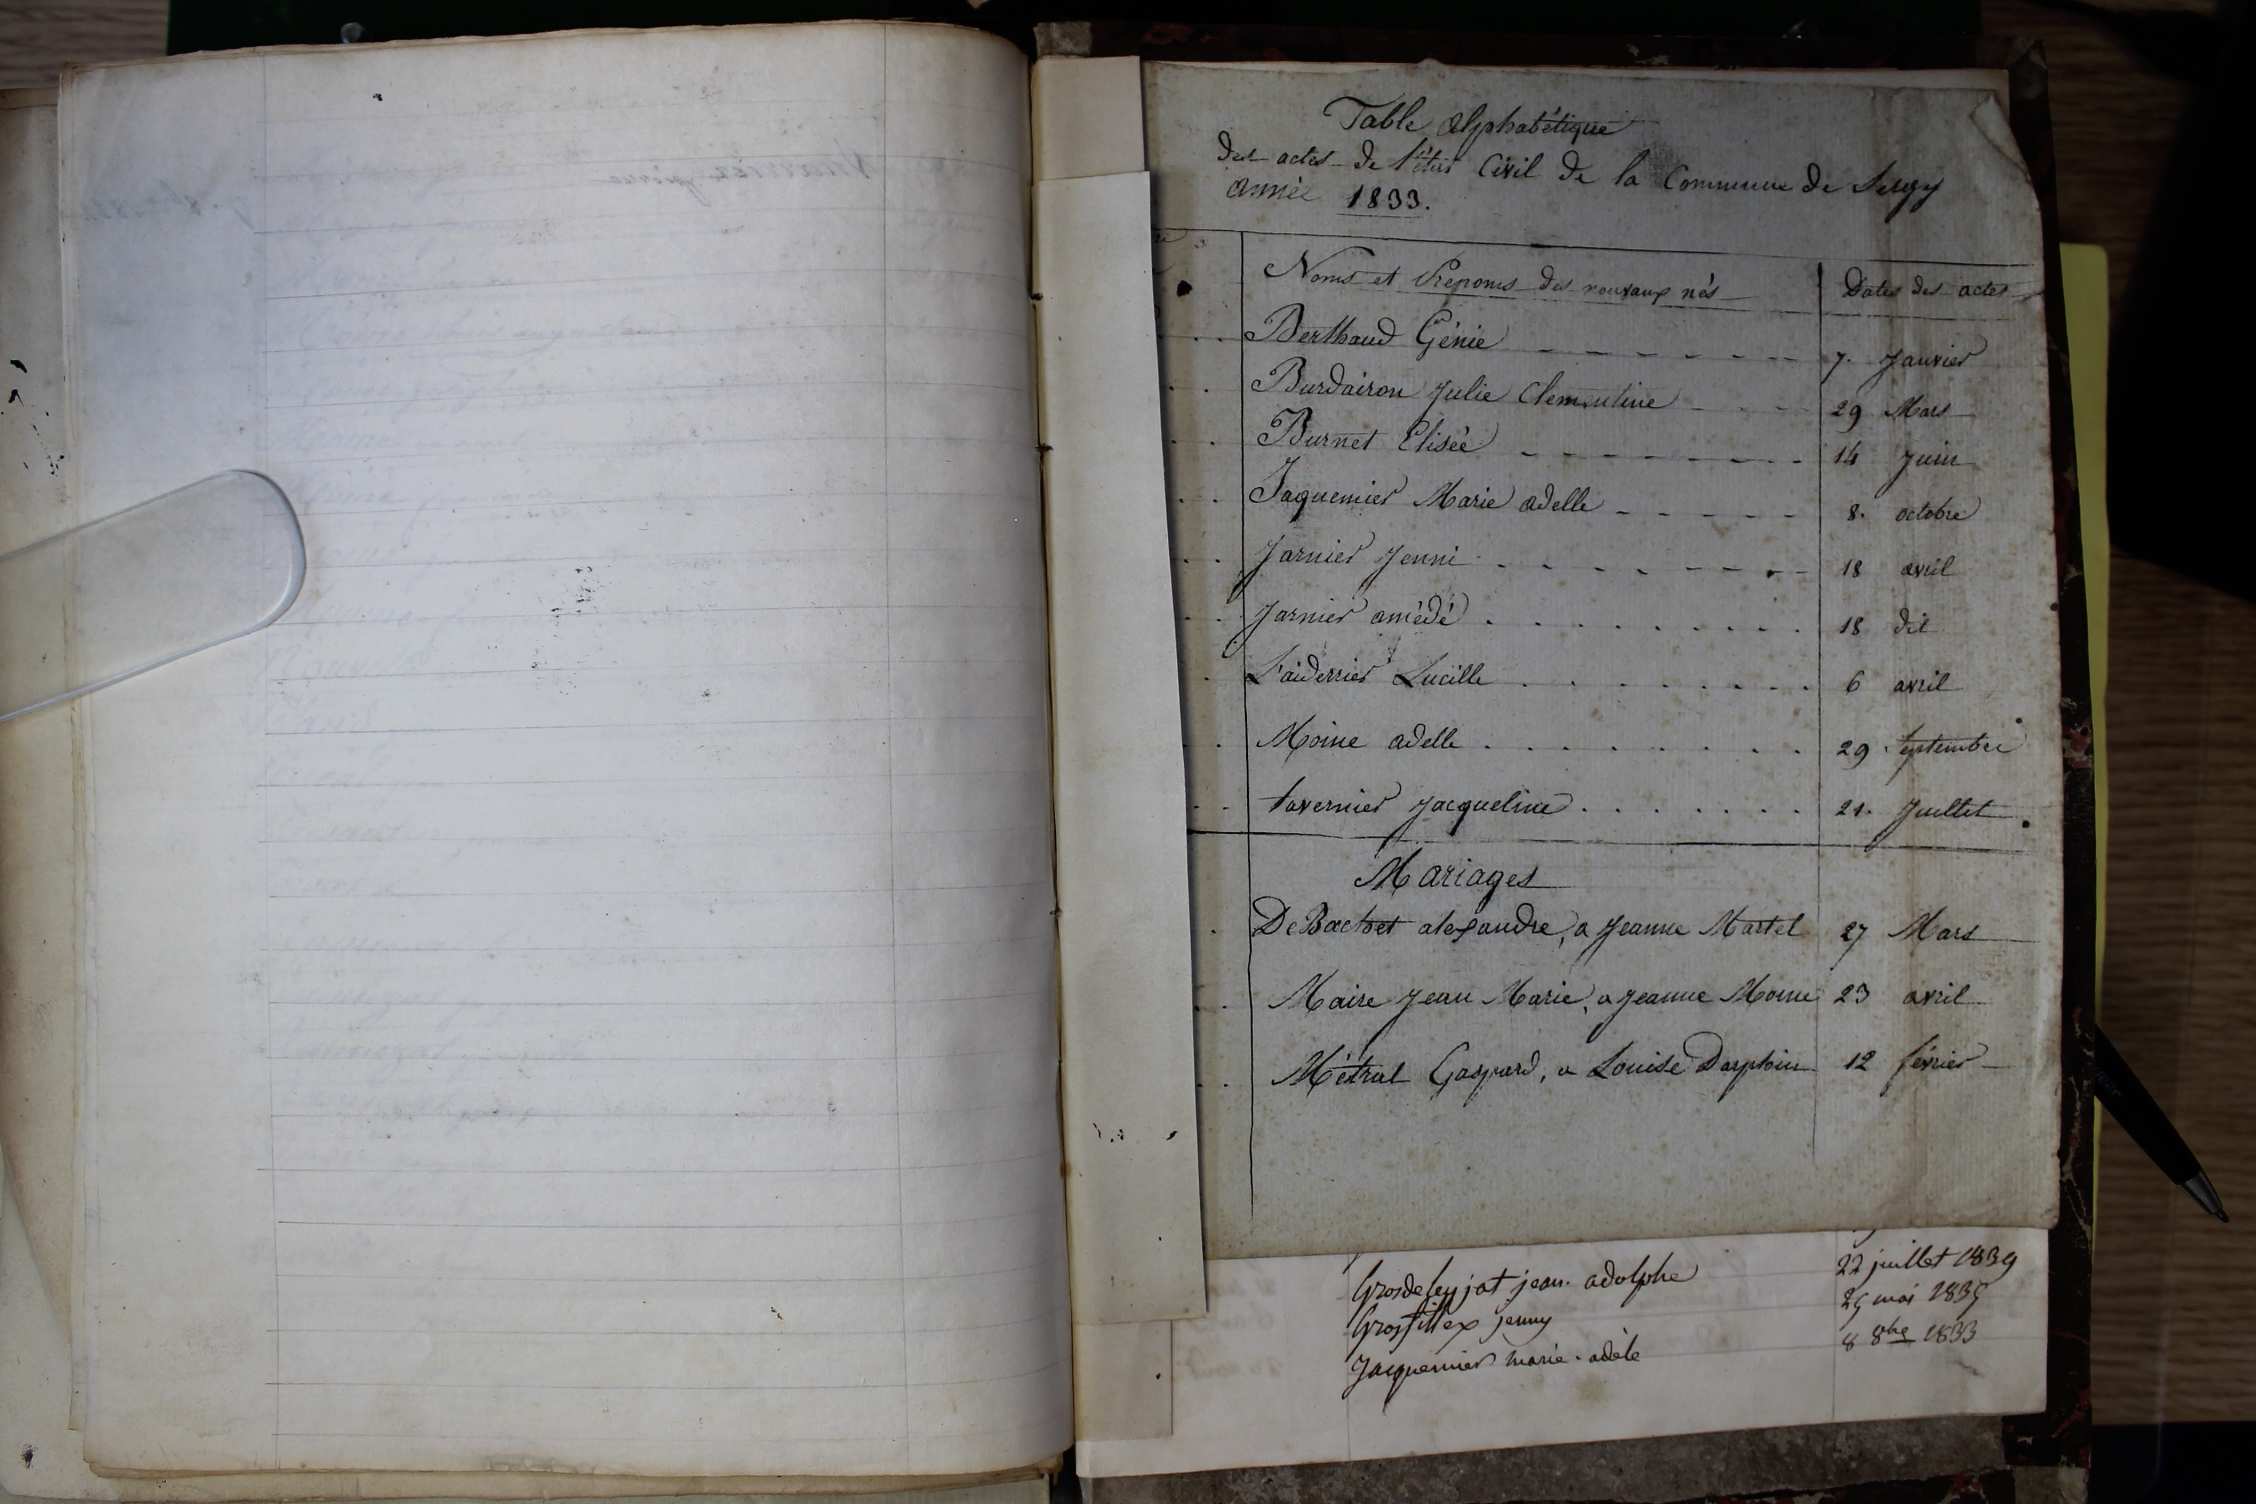 Table alphabétique
des actes de l'état Civil de la Commune de Sergy
année 1833.
Noms et Prenoms des nouvaux nés Dates des actes
Berthaud Génie 7. Janvier
Burdairon Julie Clementine 29 Mars
Burnet Elisée 14 Juin
Jaquemier Marie adelle 8. octobre
Jarnier Jenni 18 avril
Jarnier amédé 18 dit
Laiderrier Lucille 6 avril
Moine adelle 29 Septembre
tavernier Jacqueline 21. Juillet
Mariages
De Bachet alexandre, a Jeanne Martel 27 Mars
Maire Jean Marie, a Jeanne Moine 23 avril
Métral Gaspard, a Louise Dasphin 12 février
Grosdeleyjat jean. adolphe 22 juillet 1839
Grosfillex jenny 25 mai 1835
Jacquemier marie. adèle 8 8bre 1833